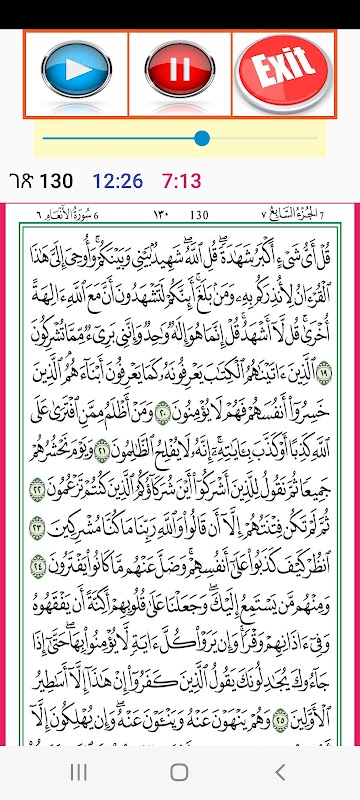 Exit
ገጽ 130 12:26 7:13
7 الجزء السابع ٧ ١٣٠ 130 6 سورة الأنعام ٦
قُلْ أَىُّ شَىْءٍ أَكْبَرُ شَهَٰدَةً ۖ قُلِ ٱللَّهُ ۖ شَهِيدٌۢ بَيْنِى وَبَيْنَكُمْ ۚ وَأُوحِىَ إِلَىَّ هَٰذَا
ٱلْقُرْءَانُ لِأُنذِرَكُم بِهِۦ وَمَنۢ بَلَغَ ۚ أَئِنَّكُمْ لَتَشْهَدُونَ أَنَّ مَعَ ٱللَّهِ ءَالِهَةً
أُخْرَىٰ ۚ قُل لَّآ أَشْهَدُ ۚ قُلْ إِنَّمَا هُوَ إِلَٰهٌ وَٰحِدٌ وَإِنَّنِى بَرِىٓءٌ مِّمَّا تُشْرِكُونَ
١٩ ٱلَّذِينَ ءَاتَيْنَٰهُمُ ٱلْكِتَٰبَ يَعْرِفُونَهُۥ كَمَا يَعْرِفُونَ أَبْنَآءَهُمُ ۘ ٱلَّذِينَ
خَسِرُوٓا۟ أَنفُسَهُمْ فَهُمْ لَا يُؤْمِنُونَ ٢٠ وَمَنْ أَظْلَمُ مِمَّنِ ٱفْتَرَىٰ عَلَى
ٱللَّهِ كَذِبًا أَوْ كَذَّبَ بِـَٔايَٰتِهِۦٓ ۗ إِنَّهُۥ لَا يُفْلِحُ ٱلظَّٰلِمُونَ ٢١ وَيَوْمَ نَحْشُرُهُمْ
جَمِيعًا ثُمَّ نَقُولُ لِلَّذِينَ أَشْرَكُوٓا۟ أَيْنَ شُرَكَآؤُكُمُ ٱلَّذِينَ كُنتُمْ تَزْعُمُونَ ٢٢
ثُمَّ لَمْ تَكُن فِتْنَتُهُمْ إِلَّآ أَن قَالُوا۟ وَٱللَّهِ رَبِّنَا مَا كُنَّا مُشْرِكِينَ ٢٣
ٱنظُرْ كَيْفَ كَذَبُوا۟ عَلَىٰٓ أَنفُسِهِمْ ۚ وَضَلَّ عَنْهُم مَّا كَانُوا۟ يَفْتَرُونَ ٢٤
وَمِنْهُم مَّن يَسْتَمِعُ إِلَيْكَ ۖ وَجَعَلْنَا عَلَىٰ قُلُوبِهِمْ أَكِنَّةً أَن يَفْقَهُوهُ
وَفِىٓ ءَاذَانِهِمْ وَقْرًا ۚ وَإِن يَرَوْا۟ كُلَّ ءَايَةٍ لَّا يُؤْمِنُوا۟ بِهَا ۚ حَتَّىٰٓ إِذَا
جَآءُوكَ يُجَٰدِلُونَكَ يَقُولُ ٱلَّذِينَ كَفَرُوٓا۟ إِنْ هَٰذَآ إِلَّآ أَسَٰطِيرُ
ٱلْأَوَّلِينَ ٢٥ وَهُمْ يَنْهَوْنَ عَنْهُ وَيَنْـَٔوْنَ عَنْهُ ۖ وَإِن يُهْلِكُونَ إِلَّآ